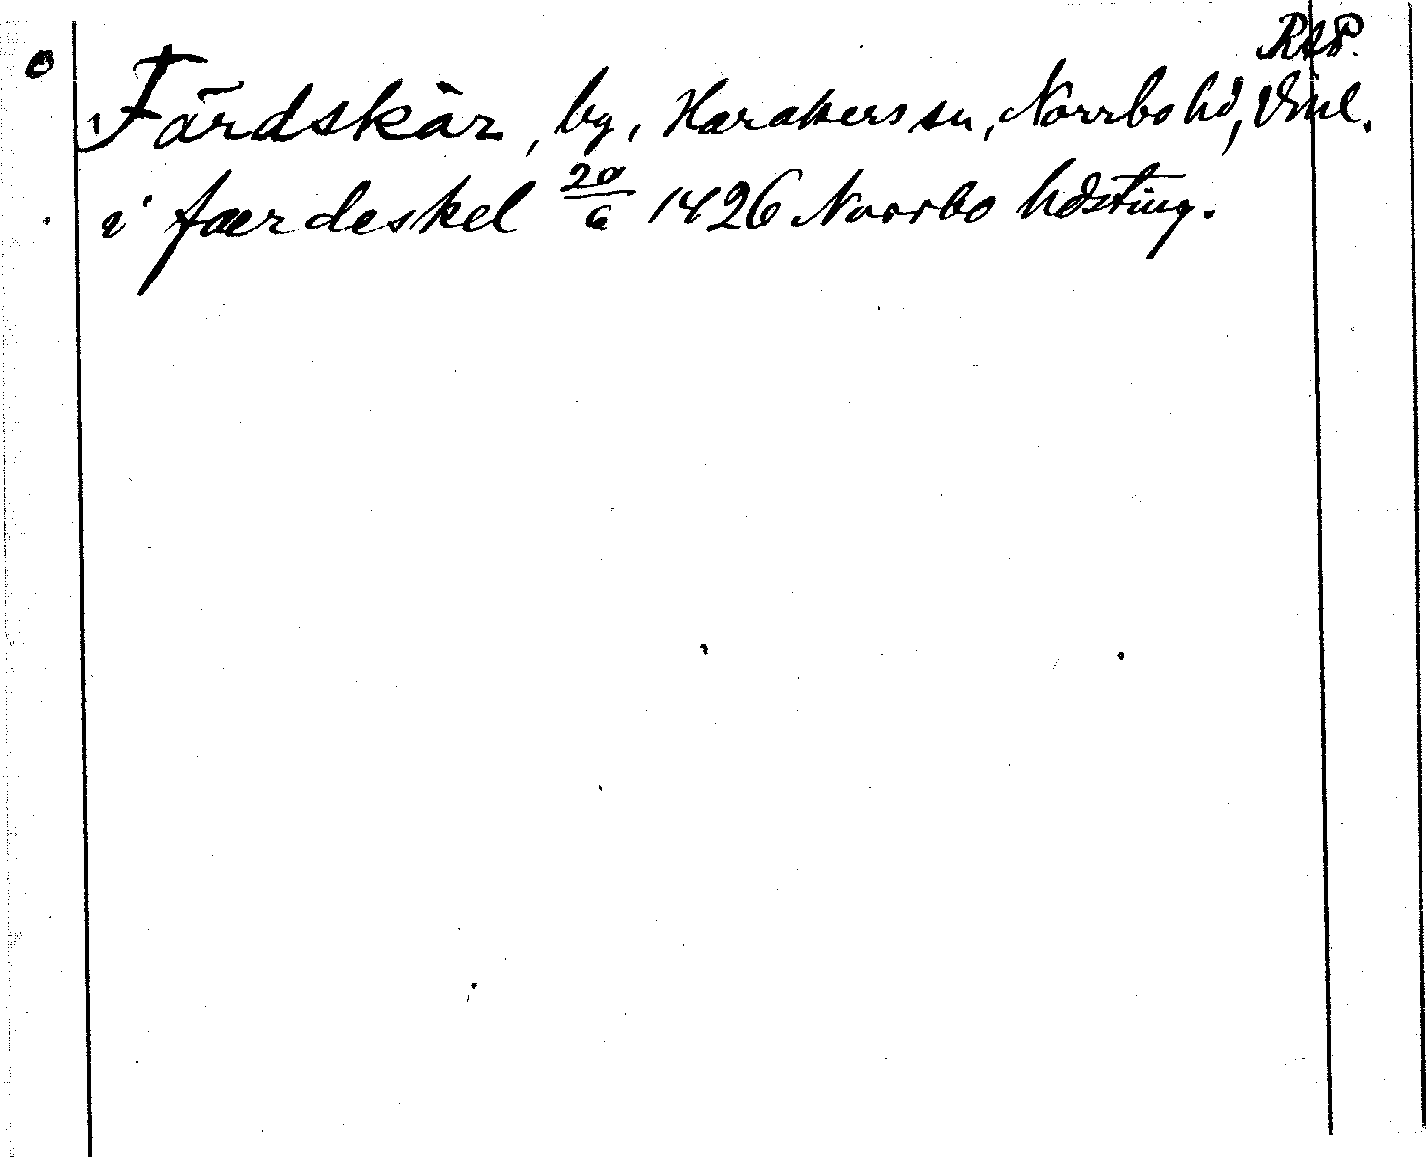 RAP.
Färdskär, by, Harakers sn, Norrbo hd, Vml.
i færdeskel 20/6 1426 Norrbo hdsting.